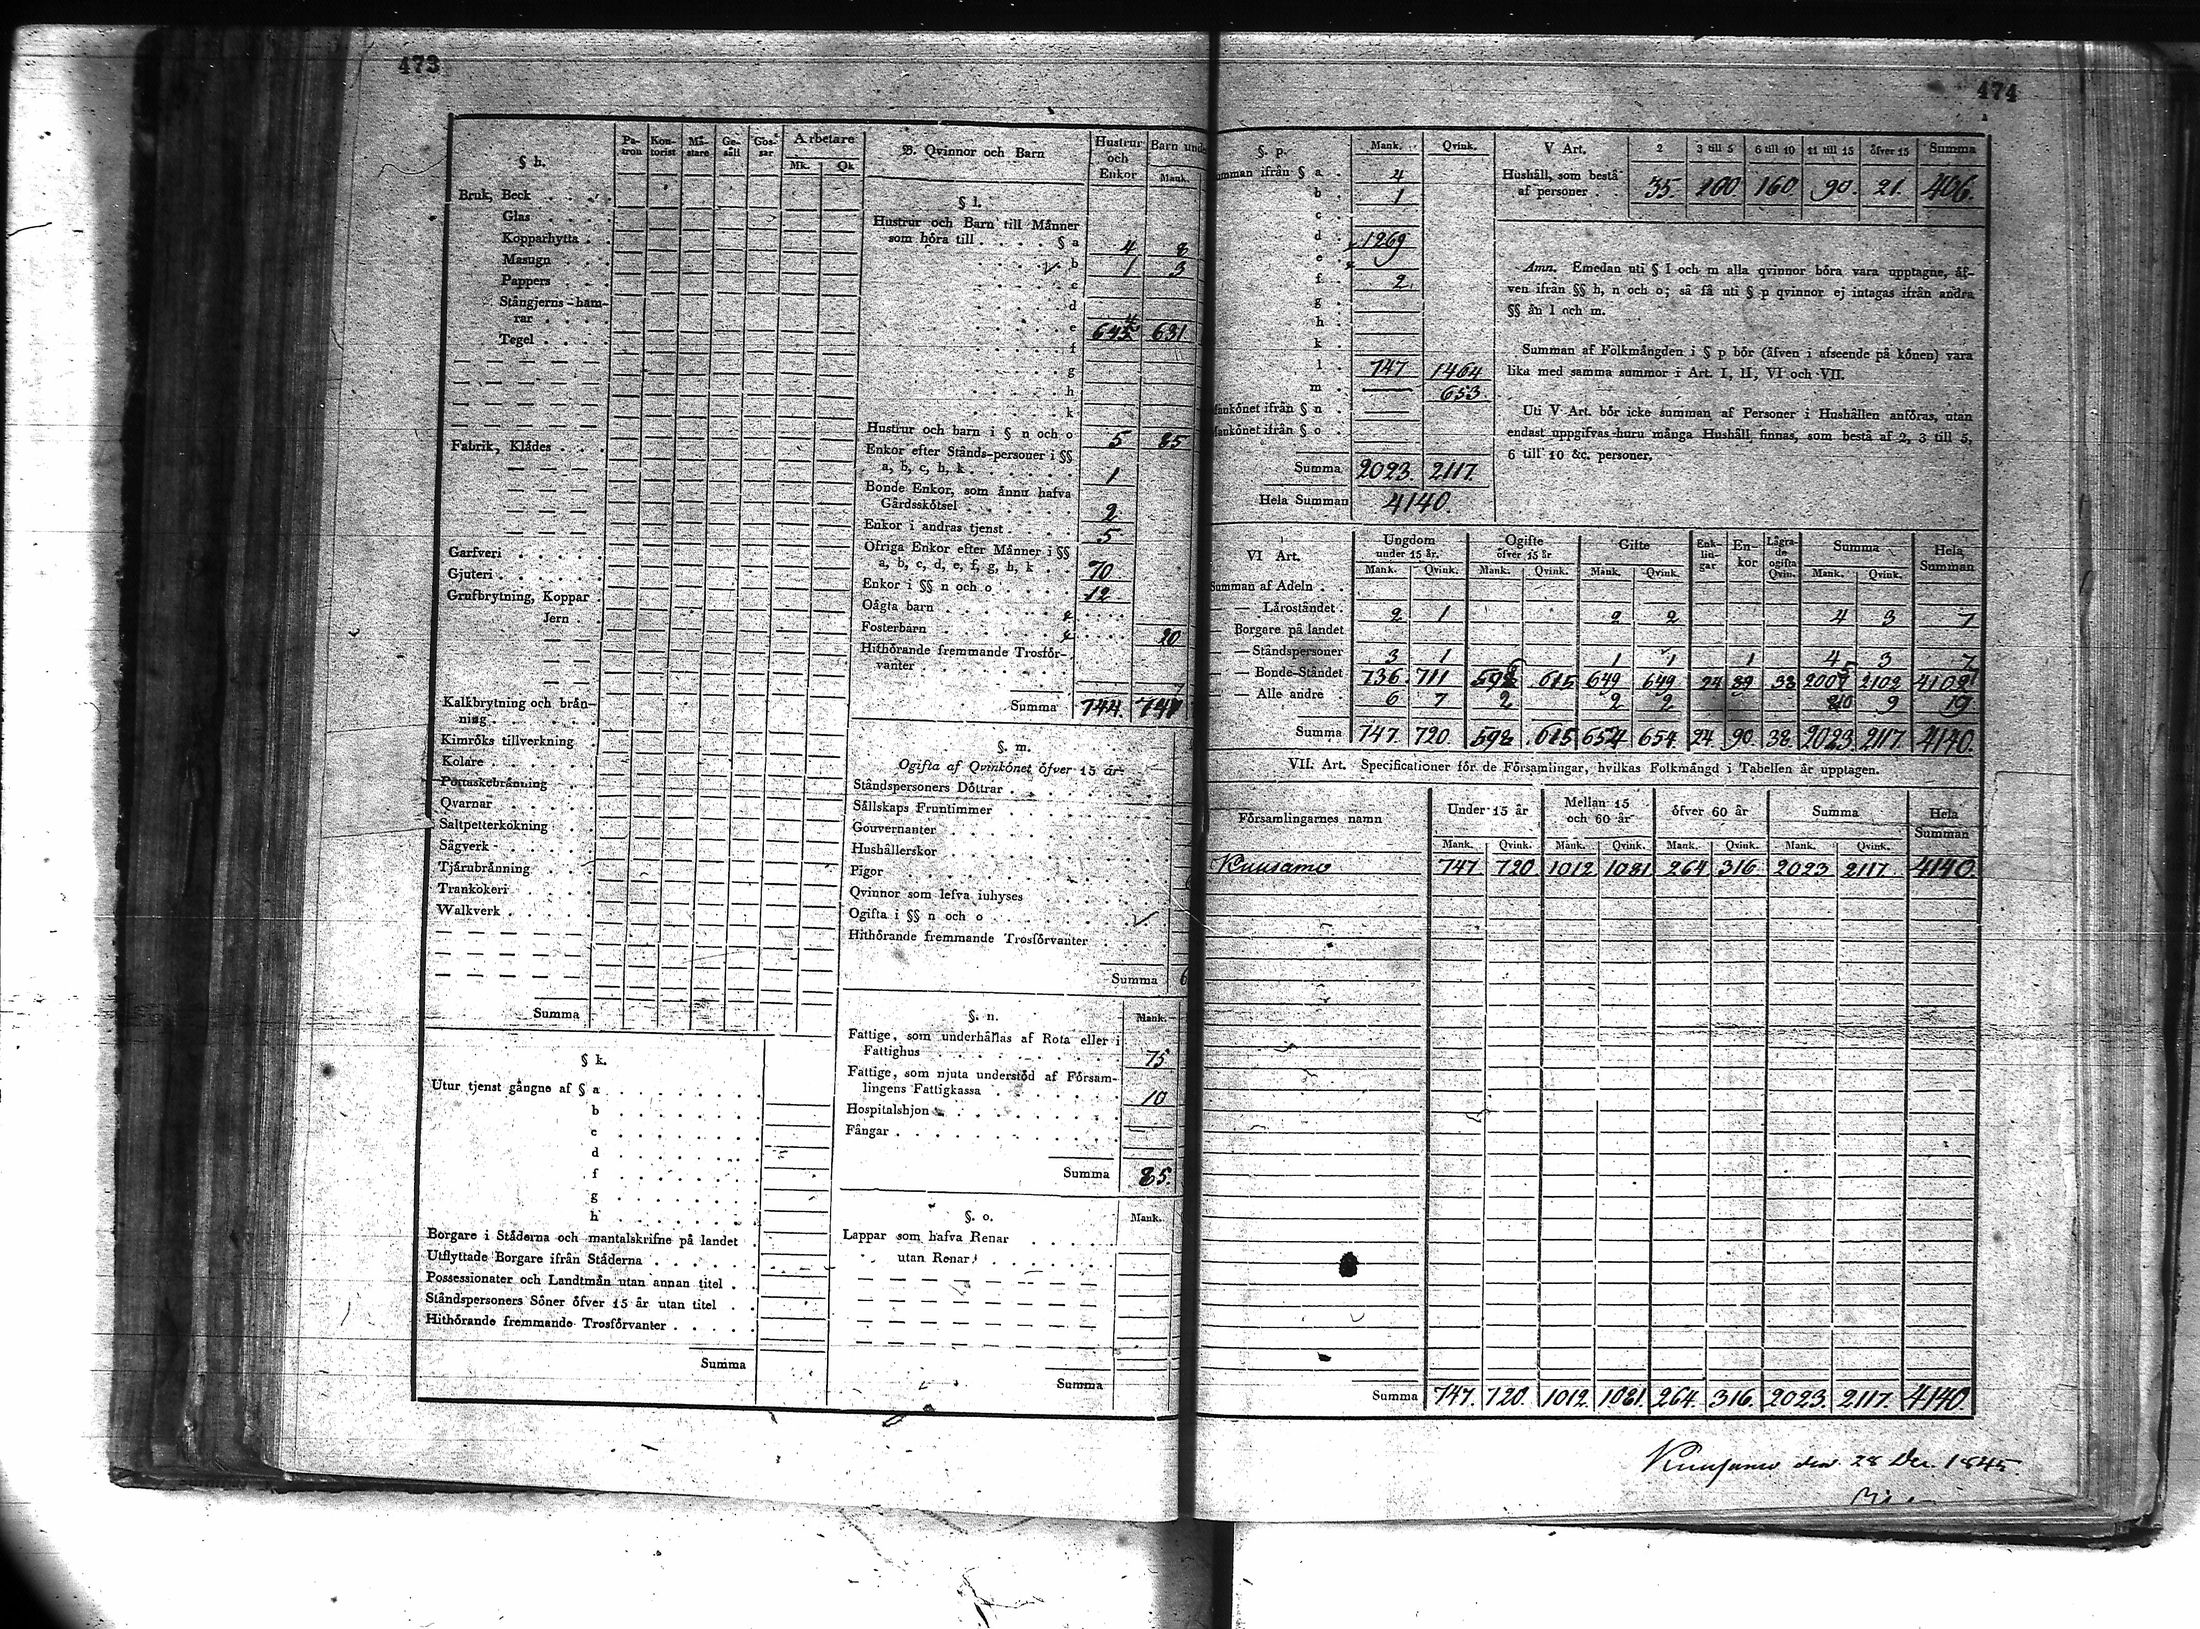 473
§ h.
Pa-tron Kon-torist Mä-stare Ge-säll Gos-sar Arbetare
Mk. Qk
Bruk, Beck
Glas
Kopparhytta
Masugn
Pappers
Stångjerns-ham-
rar
Tegel
Fabrik, Klädes
Garfveri
Gjuteri
Grufbrytning, Koppar
Jern
Kalkbrytning och brän-
ning
Kimröks tillverkning
Kolare
Pottaskebränning
Qvarnar
Saltpetterkokning
Sågverk
Tjärubränning
Trankokeri
Walkverk
Summa
§ k.
Utur tjenst gångne af § a
b
c
d
f
g
h
Borgare i Städerna och mantalskrifne på landet
Utflyttade Borgare ifrån Städerna
Possessionater och Landtmän utan annan titel
Ståndspersoners Söner öfver 15 år utan titel
Hithörande fremmande Trosförvanter
Summa
B. Qvinnor och Barn Hustrur och Enkor Barn unde
Mank.
§ l.
Hustrur och Barn till Männer
som höra till § a 4 8
b 1 3
c
d
e 631
f
g
h
k
Hustrur och barn i § n och o 5 85
Enkor efter Stånds-personer i §§
a, b, c, h, k 1
Bonde Enkor, som ännu hafva
Gårdsskötsel 2
Enkor i andras tjenst 5
Öfriga Enkor efter Männer i §§
a, b, c, d, e, f, g, h, k 70
Enkor i §§ n och o 12
Oägta barn
Fosterbarn 20
Hithörande fremmande Trosför-
vanter
Summa 744. 747
§. m.
Ogifta af Qvinkönet öfver 15 år
Ståndspersoners Döttrar
Sällskaps Fruntimmer
Gouvernanter
Hushållerskor
Pigor
Qvinnor som lefva inhyses
Ogifta i §§ n och o
Hithörande fremmande Trosförvanter
Summa 6
§. n. Mank.
Fattige, som underhållas af Rota eller i
Fattighus 75
Fattige, som njuta understöd af Försam-
lingens Fattigkassa 10
Hospitalshjon
Fångar
Summa 85.
§. o. Mank.
Lappar som hafva Renar
utan Renar
Summa
474
§. p. Mank. Qvink.
umman ifrån § a 4
b 1
c
d 1269
e
f 2.
g
h
k
l 747 1464
m 653.
Mankönet ifrån § n
Mankönet ifrån § o
Summa 2023. 2117.
Hela Summan 4140.
V Art. 2 3 till 5 6 till 10 11 till 15 öfver 15 Summa
Hushåll, som bestå
af personer 35. 100 160 90. 21. 406.
Anm. Emedan uti § l och m alla qvinnor böra vara upptagne, äf-
ven ifrån §§ h, n och o; så få uti § p qvinnor ej intagas ifrån andra
§§ än l och m.
Summan af Folkmängden i § p bör (äfven i afseende på könen) vara
lika med samma summor i Art. I, II, VI och VII.
Uti V Art. bör icke summan af Personer i Hushållen anföras, utan
endast uppgifvas huru många Hushåll finnas, som bestå af 2, 3 till 5,
6 till 10 &c. personer.
VI Art. Ungdom under 15 år. Ogifte öfver 15 år Gifte Enk-lin-gar En-kor Lägra-de ogifta Qvin. Summa Hela Summan
Mank. Qvink. Mank. Qvink. Mank. Qvink. Mank. Qvink.
Summan af Adeln
— — Läroståndet 2 1 2 2 4 3 7
— Borgare på landet
— — Ståndspersoner 3 1 1 1 1 4 3 7
— — Bonde-Ståndet 736. 711 615 649 649 24 89 38 2102
— — Alle andre 6 7 2 2 2 9 19
Summa 747. 720. 598 615 654 654 24. 90. 38. 2023. 2117. 4140.
VII. Art. Specificationer för de Församlingar, hvilkas Folkmängd i Tabellen är upptagen.
Församlingarnes namn Under 15 år Mellan 15 och 60 år öfver 60 år Summa Hela Summan
Mank. Qvink. Mank. Qvink. Mank. Qvink. Mank. Qvink.
Kuusamo 747 720 1012 1081 264 316 2023 2117. 4140.
Summa 747. 720. 1012. 1081. 264. 316. 2023. 2117. 4140.
Kuusamo den 28 Dec. 1845.